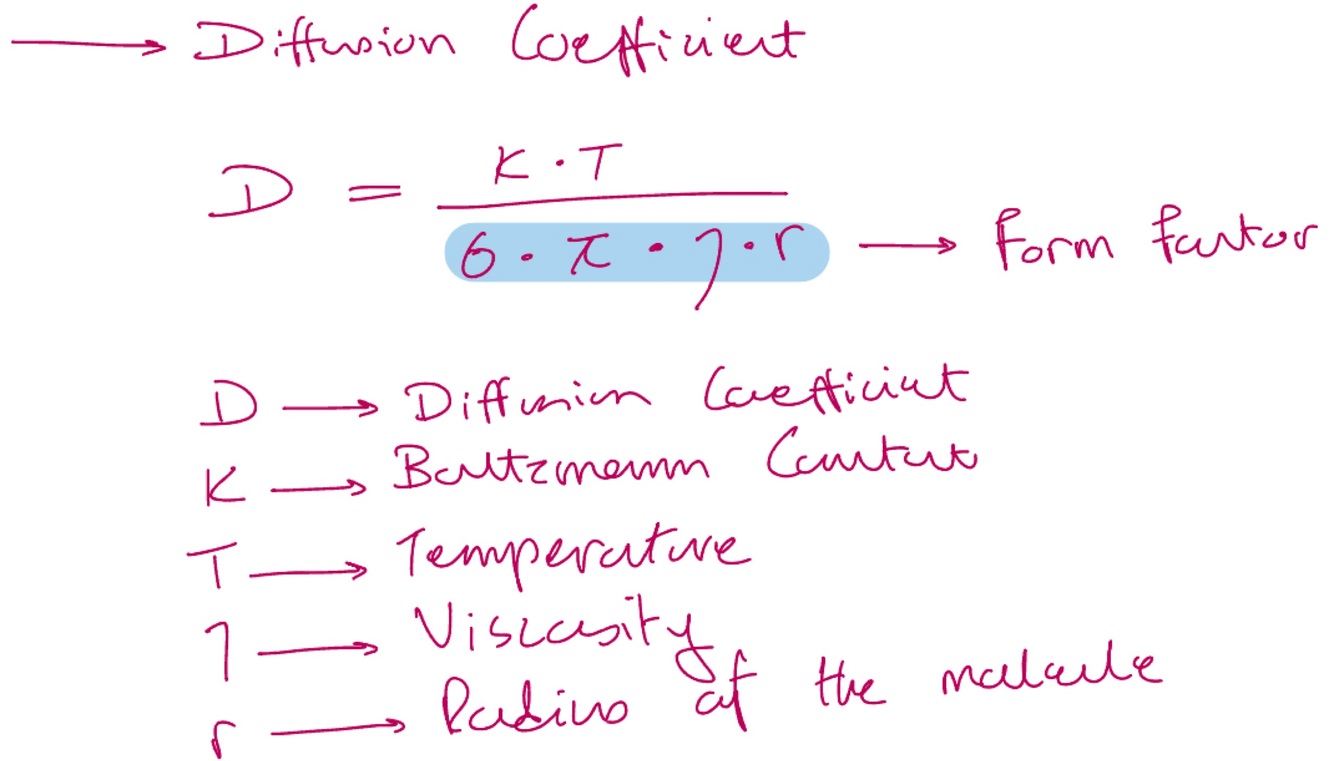 → Diffusion Coefficient
D = K · T / 6 · π · η · r → Form factor
D → Diffusion Coefficient
K → Boltzmann Constant
T → Temperature
η → Viscosity
r → Radius of the molecule